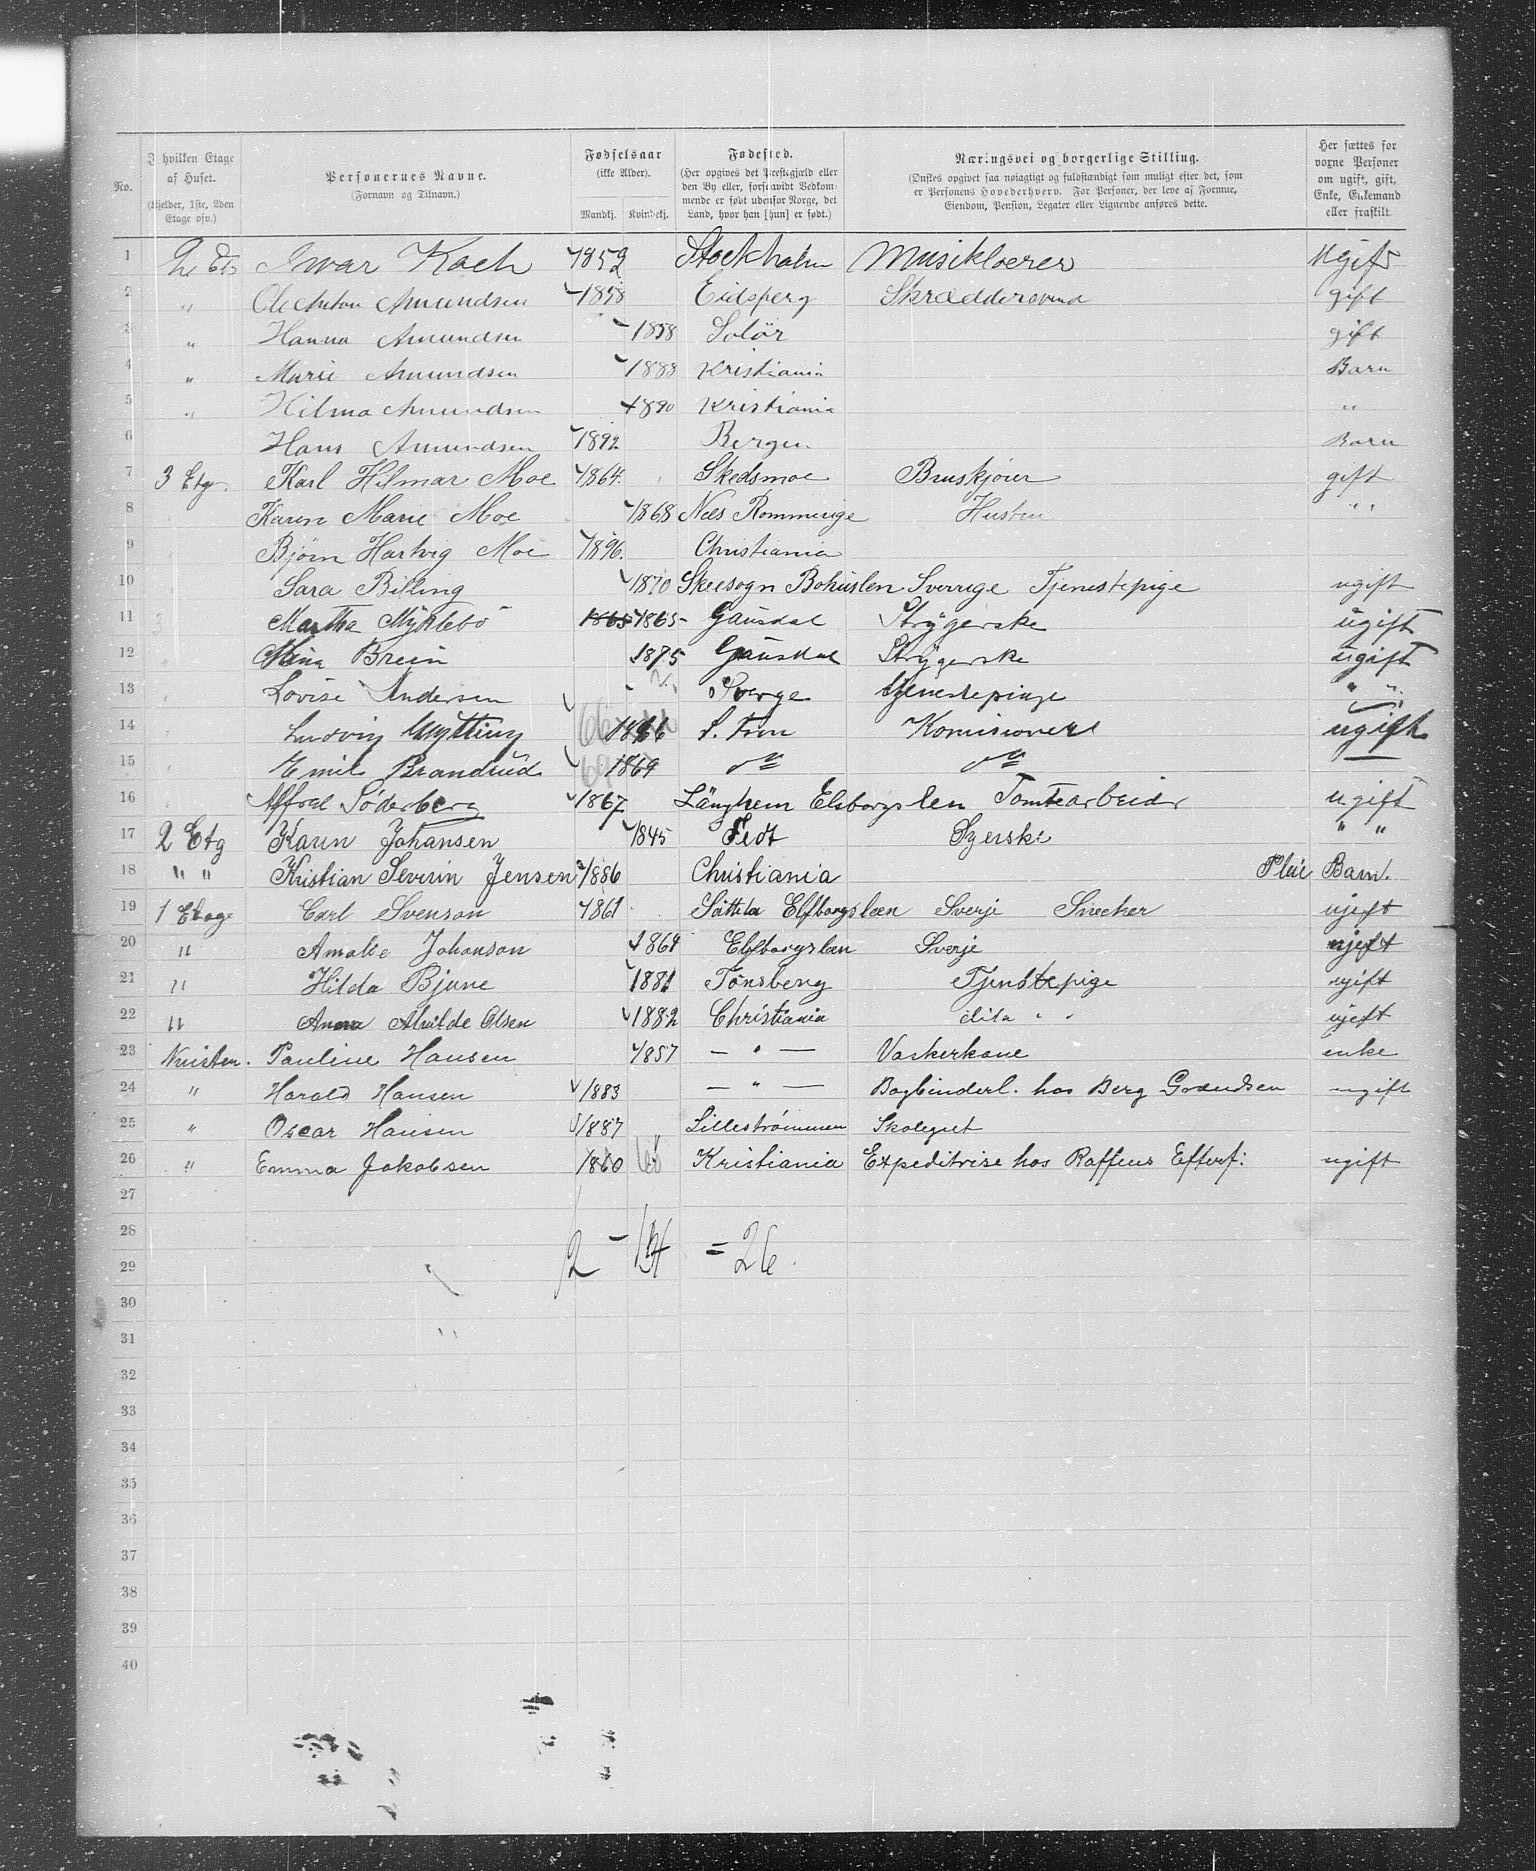 No. I hvilken Etage af Huset. (Kjelder, 1ste, 2den Etage osv.) Personernes Navne. (Fornavn og Tilnavn.) Fødselsaar (ikke Alder). Mandkj. Kvindekj. Fødested. (Her opgives det Præstegjæld eller den By eller, forsaavidt Vedkommende er født udenfor Norge, det Land, hvor han [hun] er født.) Næringsvei og borgerlige Stilling. (Ønskes opgivet saa nøiagtigt og fuldstændigt som muligt efter det, som er Personens Hovederhverv. For Personer, der leve af Formue, Eiendom, Pension, Legater eller Lignende anføres dette. Her sættes for voxne Personer om ugift, gift, Enke, Enkemand eller fraskilt.
1 2 Etg Ivar Koch 1852 Stockholm Musiklærer Ugift
2 " Ole Anton Amundsen 1858 Eidsperg Skrædersvend gift
3 " Hanna Amundsen 1858 Solør gift
4 " Marie Amundsen 1883 Kristiania Barn
5 " Hilma Amundsen 1890 Kristiania "
6 Hans Amundsen 1892 Bergen Barn
7 3 Etg. Karl Hilmar Moe 1864. Skedsmoe Bruskjører gift
8 Karen Marie Moe 1868 Næs Rommerige Hustru " "
9 Bjørn Hartvig Moe 1896. Christiania
10 Sara Billing 1870 Skeesogn Bohuslen Sverrige Tjenestepige ugift
11 Martha Myklebö 1865 1865 Gausdal Strygerske ugift
12 Mina Breiin 1875 Gausdal Strygerske ugift
13 Lovise Andersen Sverge tjenestepige " "
14 Ludvig Mytting 1866 S. Fron Komisionær ugift
15 Emil Brandrud 1869
16 Alfred Söderberg 1867 Länghem Elsborgslen Tomtearbeider ugift
17 2 Etg Karen Johansen 1845 Fedt Syerske " "
18 " " Kristian Severin Jensen 1886 Christiania Pleie Barn.
19 1 Etage Carl Svenson 1861 Sättila Elfborgslæn Sverje Snecker ujeft
20 " Amalie Johanson 1864 Elfborgslæn Sverje ujeft
21 " Hilda Bjune 1881 Tønsberg Tjenstepige ugift
22 " Anna Alvilde Olsen 1882 Christiania dito " " ujeft
23 Kvisten. Pauline Hansen 1857 — " — Vaskerkone enke
24 " Harald Hansen 1883 — " — Bogbinderl. hos Berg Grændsen ugift
25 " Oscar Hansen 1887 Lillestrømmen Skolegut
26 " Emma Jakobsen 1860 60 Kristiania Expeditrise hos Raffens Efterf: ugift
27
28
12 – 14 = 26.
29
30
31
32
33
34
35
36
37
38
39
40